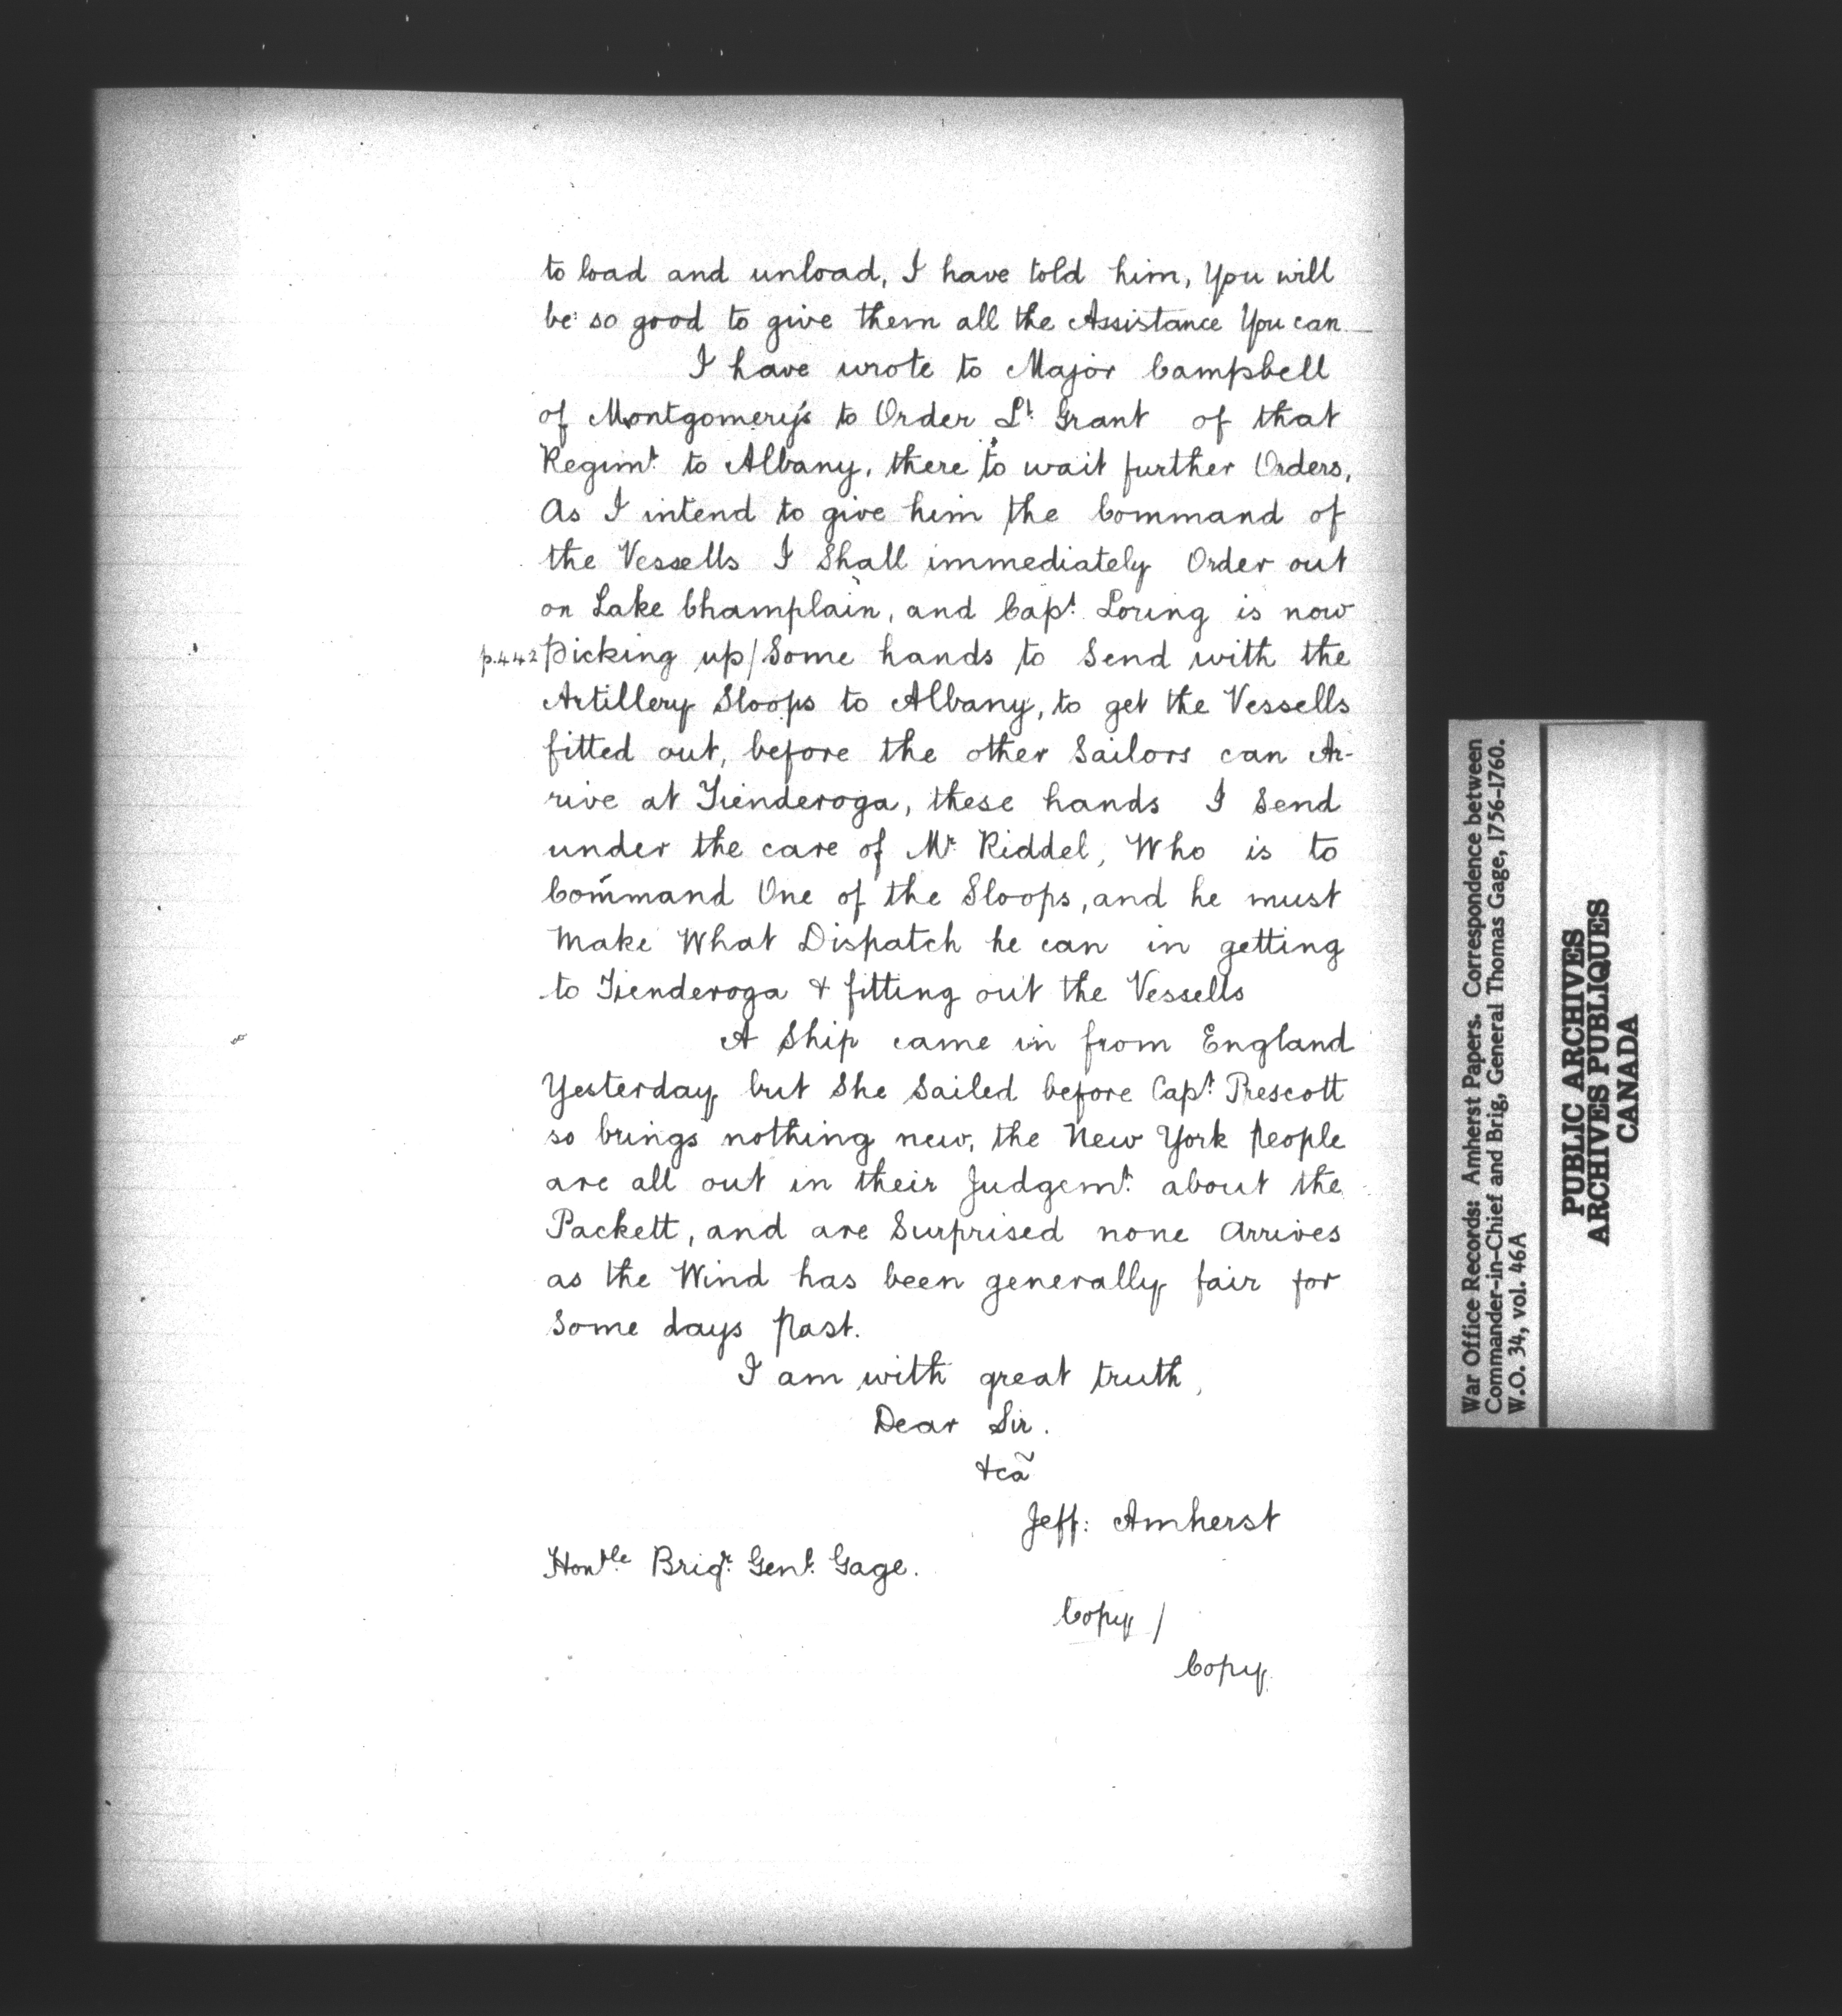 to load and unload, I have told him, You will
be so good to give them all the Assistance You can —
I have wrote to Major Campbell
of Montgomery's to Order Lt. Grant of that
Regimt. to Albany, there to wait further Orders,
As I intend to give him the Command of
the Vessells I Shall immediately Order out
on Lake Champlain, and Capt. Loring is now
p.442 Picking up / Some hands to Send with the
Artillery Sloops to Albany, to get the Vessells
fitted out, before the other Sailors can Ar-
rive at Tienderoga, these hands I Send
under the care of Mr. Riddel, Who is to
Command One of the Sloops, and he must
Make What Dispatch he can in getting
to Tienderoga & fitting out the Vessells
A Ship came in from England
Yesterday but She Sailed before Capt. Prescott
so brings nothing new, the New York people
are all out in their Judgemt. about the
Packett, and are Surprised none Arrives
as the Wind has been generally fair for
Some days past.
I am with great truth,
Dear Sir.
&cã
Jeff: Amherst
Honble. Brigr. Genl. Gage.
Copy /
Copy.
War Office Records: Amherst Papers. Correspondence between
Commander-in-Chief and Brig, General Thomas Gage, 1756-1760.
W.O. 34, vol. 46A
PUBLIC ARCHIVES
ARCHIVES PUBLIQUES
CANADA